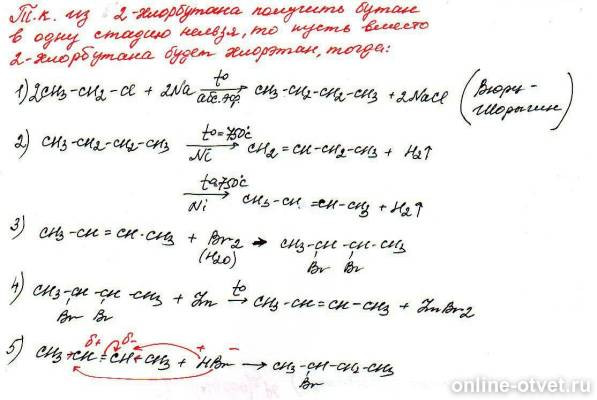 Т.к. из 2-хлорбутана получить бутан
в одну стадию нельзя, то пусть вместо
2-хлорбутана будет хлорэтан, тогда:
1) 2CH3-CH2-Cl + 2Na t° абс.эф. → CH3-CH2-CH2-CH3 + 2NaCl (Вюрц-Шорыгин)
2) CH3-CH2-CH2-CH3 t°=750°C Ni → CH2=CH-CH2-CH3 + H2↑
t=750°C Ni → CH3-CH=CH-CH3 + H2↑
3) CH3-CH=CH-CH3 + Br2 (H2O) → CH3-CH-CH-CH3
Br Br
4) CH3-CH-CH-CH3 + Zn t° → CH3-CH=CH-CH3 + ZnBr2
Br Br
δ+ δ- + -
5) CH3-CH=CH-CH3 + HBr → CH3-CH-CH2-CH3
Br
online-otvet.ru